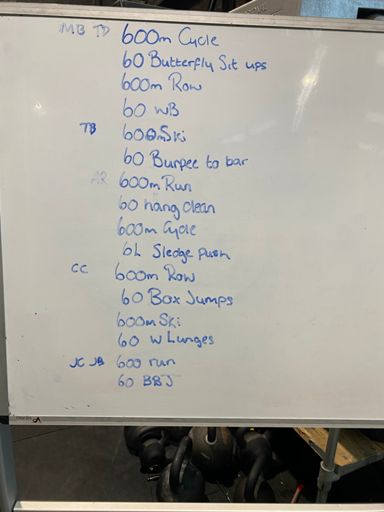 MB TD 600m Cycle
60 Butterfly Sit ups
600m Row
60 WB
TB 600mSki
60 Burpee to bar
AR 600m Run
60 hang clean
600m Cycle
6L Sledge Push
CC 600m Row
60 Box Jumps
600m Ski
60 W Lunges
JC JB 600 run
60 BBJ